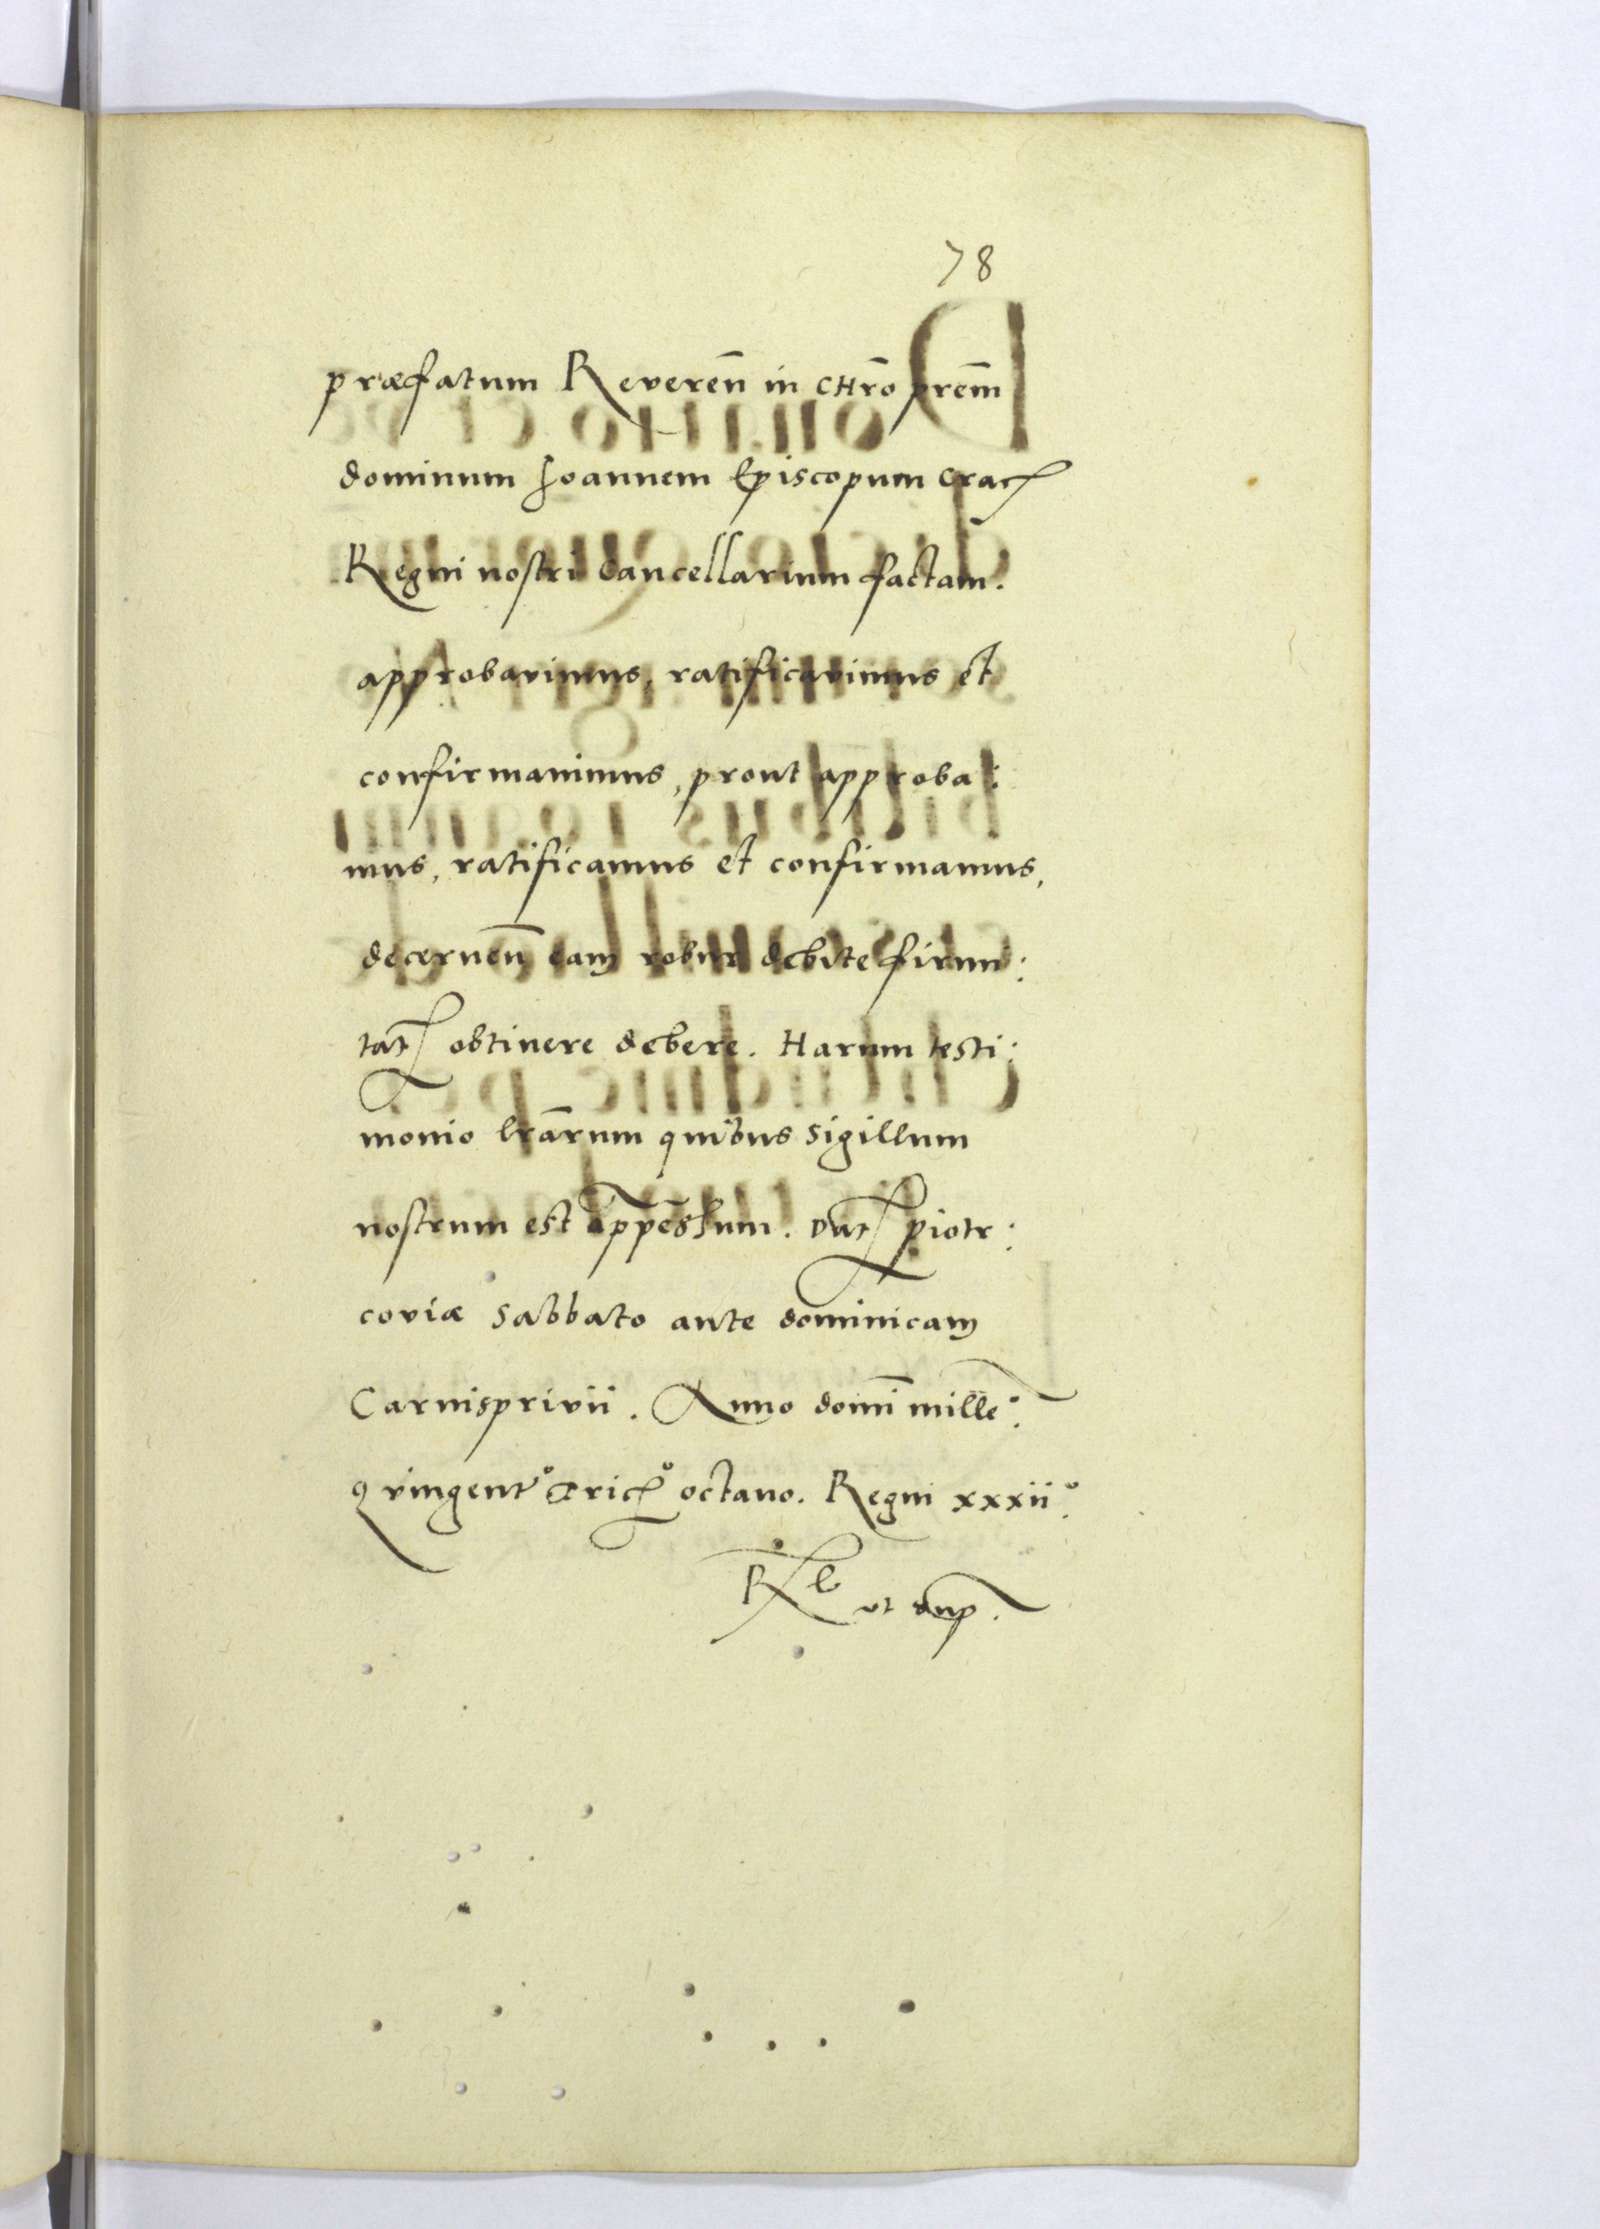 78
præfatum Reveren̄ in CHr̄o prem̄
dominum Ioannem Episcopum Crac
Regni nostri Cancellarium factam.
approbavimus, ratificavimus et
confirmavimus, prout approba:
mus, ratificamus et confirmamus,
decernen̄ eam robur debite firmi:
tat obtinere debere. Harum testi:
monio lr̄arum quibus sigillum
nostrum est appēsum. Dat piotr:
coviæ Sabbato ante dominicam
Carnisprivii. Anno domī mille°:
qvingent° Tric° octavo. Regni xxxii°.
Rl ut sup.